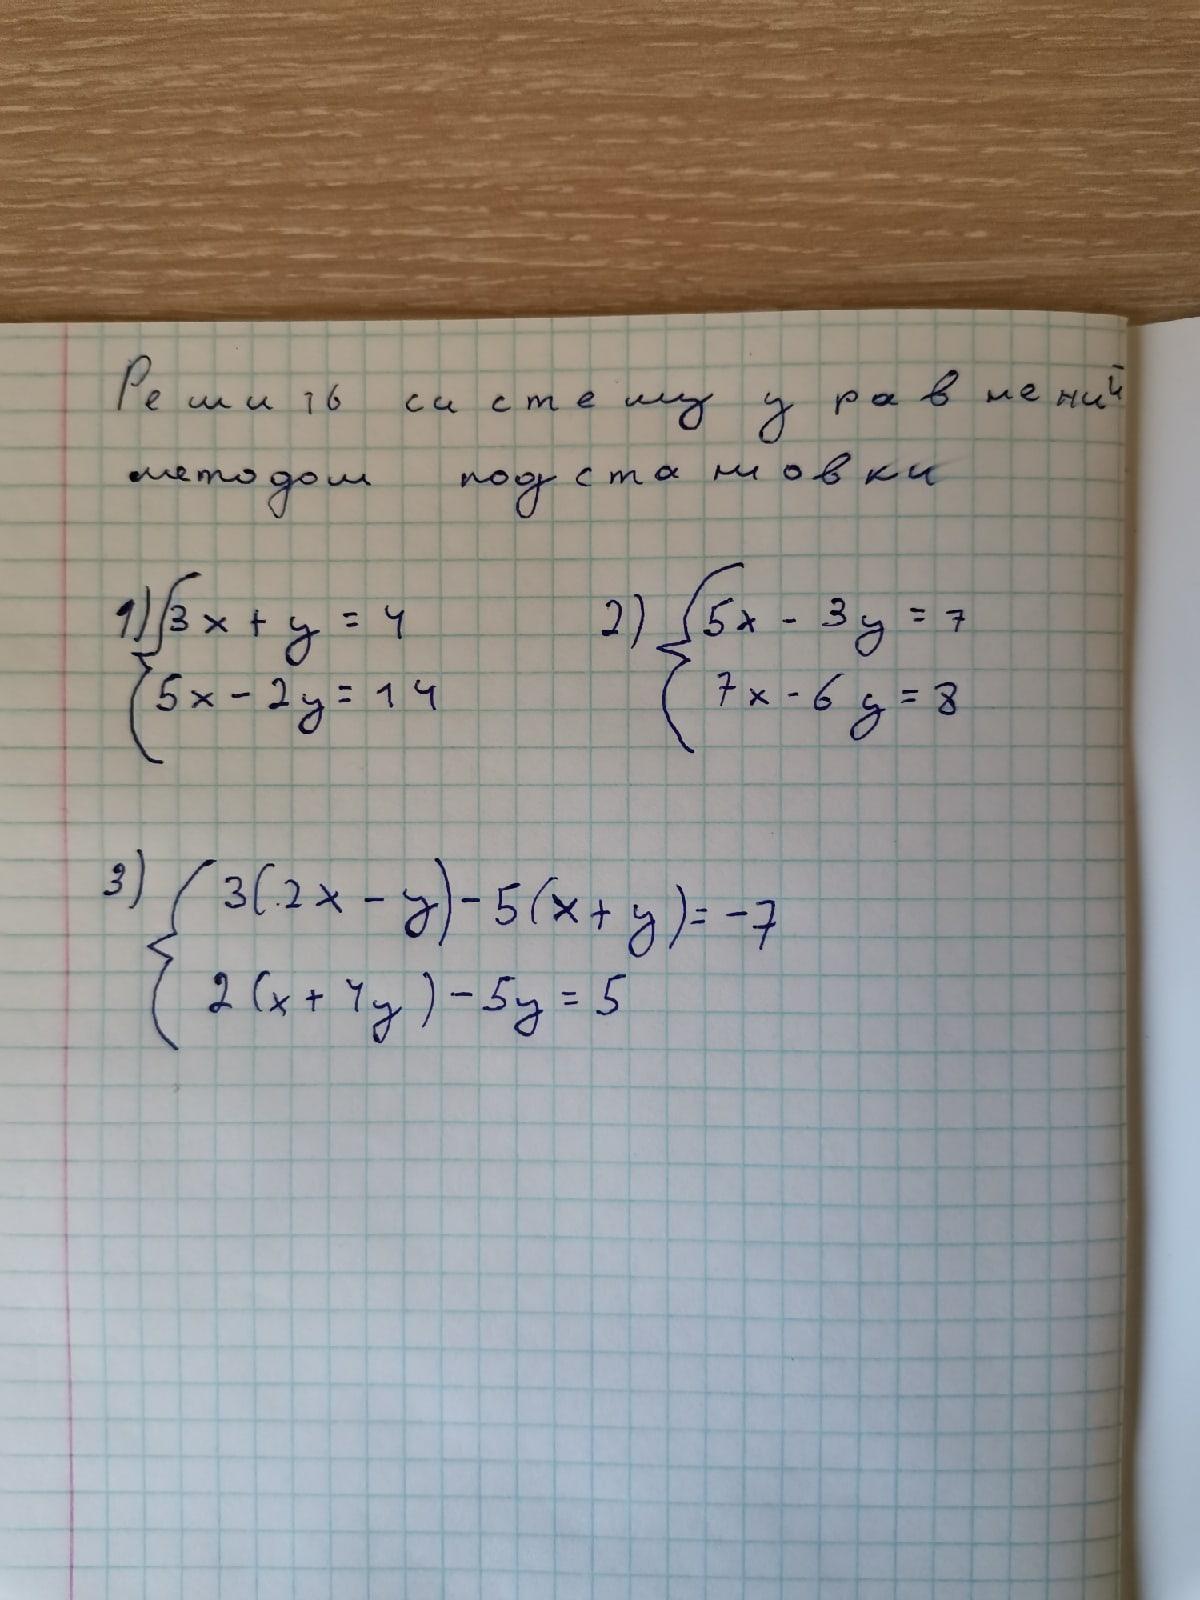 Решить систему уравнений
методом подстановки
1) {3x + y = 4
5x - 2y = 14
2) {5x - 3y = 7
7x - 6y = 8
3) {3(2x - y) - 5(x + y) = -7
2(x + 4y) - 5y = 5